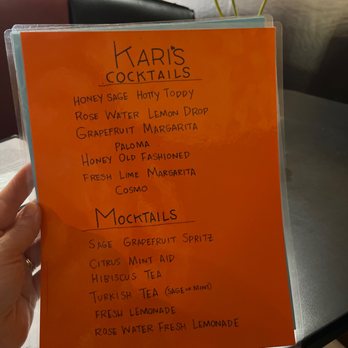 KARI'S
COCKTAILS
HONEY SAGE HOTTY TODDY
ROSE WATER LEMON DROP
GRAPEFRUIT MARGARITA
PALOMA
HONEY OLD FASHIONED
FRESH LIME MARGARITA
COSMO
MOCKTAILS
SAGE GRAPEFRUIT SPRITZ
CITRUS MINT AID
HIBISCUS TEA
TURKISH TEA (SAGE OR MINT)
FRESH LEMONADE
ROSE WATER FRESH LEMONADE